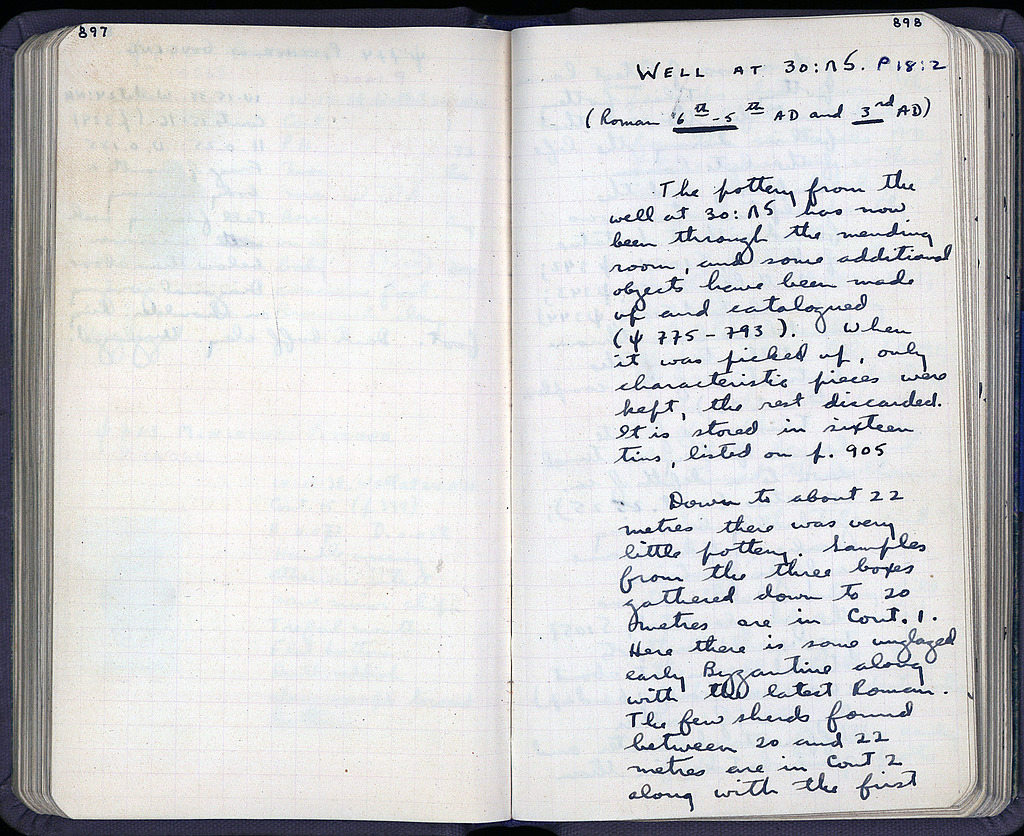 897
898
WELL AT 30:ΛS. P18:2
(Roman 6th-5th AD and 3rd AD)
The pottery from the
well at 30:ΛS has now
been through the mending
room, and some additional
objects have been made
up and catalogued
(ψ 775-793). When
it was picked up, only
characteristic pieces were
kept, the rest discarded.
It is stored in sixteen
tins, listed on p. 905
Down to about 22
metres there was very
little pottery. Samples
from the three boxes
gathered down to 20
metres are in Cont. 1.
Here there is some unglazed
early Byzantine along
with the latest Roman.
The few sherds found
between 20 and 22
metres are in Cont 2
along with the first